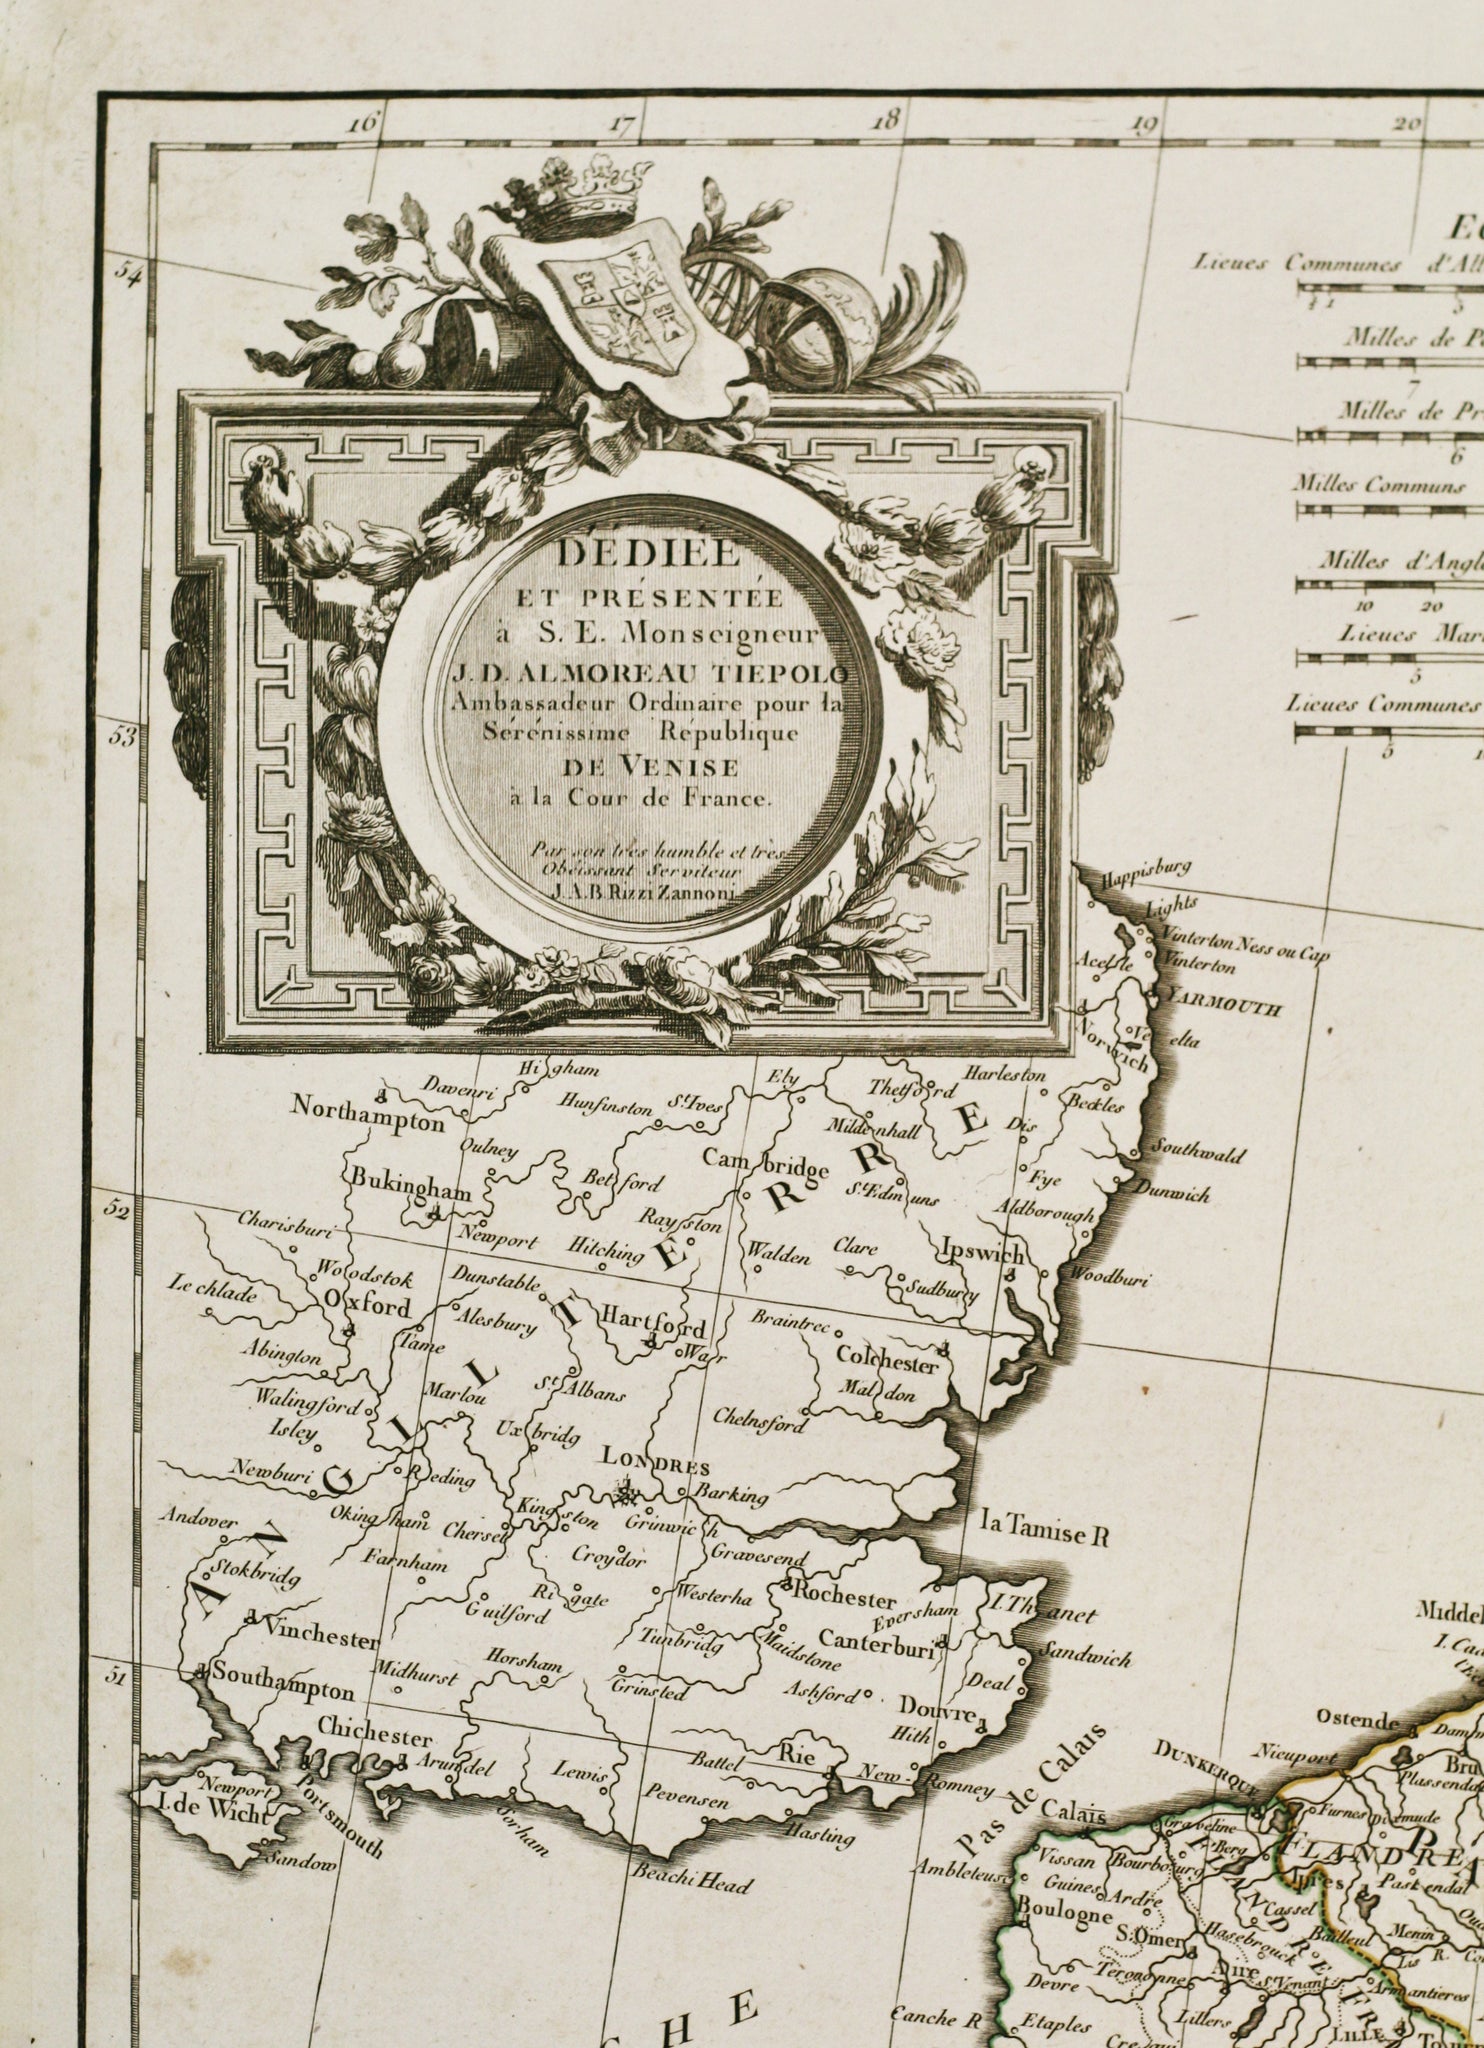 16 17 18 19 20
54
53
52
51
Lieues Communes d'All
Milles de P
7
Milles de Pr
6
Milles Communs
Milles d'Angl
10 20
Lieues Mar
5
Lieues Communes
5
DÉDIÉE
ET PRÉSENTÉE
à S. E. Monseigneur
J. D. ALMOREAU TIEPOLO
Ambassadeur Ordinaire pour la
Sérénissime République
DE VENISE
à la Cour de France.
Par son très humble et très
Obéissant Serviteur
J. A. B. Rizzi Zannoni
Happisburg
Lights
Vinterton Ness ou Cap
Vinterton
YARMOUTH
Norwich
Higham
Davenri
Northampton
Hunfinston
St. Ives
Ely
Thetford
Harleston
Beckles
Mildenhall
Dis
Oulney
Cambridge
Southwald
Bukingham
Betford
St. Edmuns
Eye
Dunwich
Aldborough
Charisburi
Newport
Hitching
Rayston
Walden
Clare
Ipswich
Woodburi
Woodstok
Dunstable
Sudbury
Lechlade
Oxford
Alesbury
Hartford
Braintree
Tame
War
Colchester
Abington
Marlou
St. Albans
Maldon
Walingford
Chelnsford
Isley
Uxbridg
LONDRES
Newburi
Reding
Barking
Andover
Okingham
Chersei
Kingston
Grinwich
la Tamise R
Stokbridg
Farnham
Croydor
Gravesend
Rigate
Westerha
Rochester
Guilford
Eversham
I. Thanet
Vinchester
Tunbridg
Maidstone
Canterburi
Sandwich
Southampton
Midhurst
Horsham
Grinsted
Ashford
Deal
Douvre
Chichester
Hith
Arundel
Lewis
Battel
Rie
New-Romney
Newport
I. de Wicht
Portsmouth
Pevensen
Hasting
Sandow
Sorham
Beachi Head
ANGLETERRE
Pas de Calais
Middel
I. Cad
Ostende
Damm
Nieuport
Bru
DUNKERQUE
Plassenda
Calais
Graveline
Furnes
Berg
FLANDRE
Vissan
Bourbourg
Ambleteuse
Guines
Ardre
Ipres
Cassel
Boulogne
St. Omer
Hasebrouck
Bailleul
Menin
Lis R.
Aire
St. Venant
Armantieres
Devre
Lillers
Canche R
Etaples
LILLE
HE